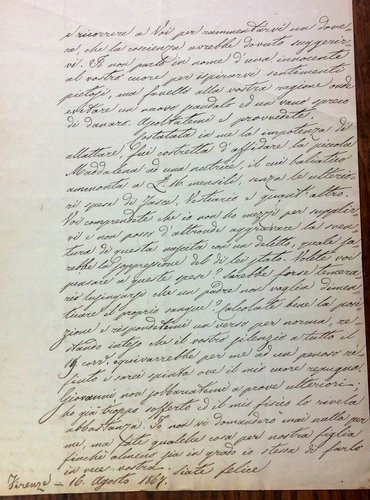 e ricorrere a Voi per rammentarvi un dove-
re, che la coscienza avrebbe dovuto suggerir-
vi. Io non parlo in nome d'una innocente
al vostro cuore per ispirarvi sentimenti
pietosi, ma favello alla vostra ragione onde
evitare un nuovo scandalo ed un vano spreco
di danaro. Ascoltatemi e provvedete.
Costatata in me la impotenza di
allattare, fui costretta d'affidare la piccola
Maddalena ad una nutrice, il cui baliatico
ammonta a L. 16 mensili, senza le ulterio-
ri spese di fasce, vestiario e quant'altro.
Voi comprendete che io non ho mezzi per supplir-
vi e non posso d'altronde aggravare la sven-
tura di questa nascita con un delitto, quale sa-
rebbe la soppressione del di lei stato. Volete voi
pensare a queste spese? Sarebbe forse temera-
rio lusingarsi che un padre non voglia dimen-
ticare il proprio sangue? Calcolate bene la posi-
zione e rispondetemi un verso per norma, re-
stando inteso che il vostro silenzio a tutto il
19 corr. equivarrebbe per me ad un penoso ri-
fiuto e sarei spinta ove il mio cuore repugna.
Giovanni non sobbarcatemi a prove ulteriori;
ho già troppo sofferto ed il mio fisico lo rivela
abbastanza. Io non vi domanderò mai nulla per
me, ma fate qualche cosa per nostra figlia
finché almeno sia in grado io stessa di farlo
in vece vostra. Siate felice
Firenze - 16. Agosto 1867.